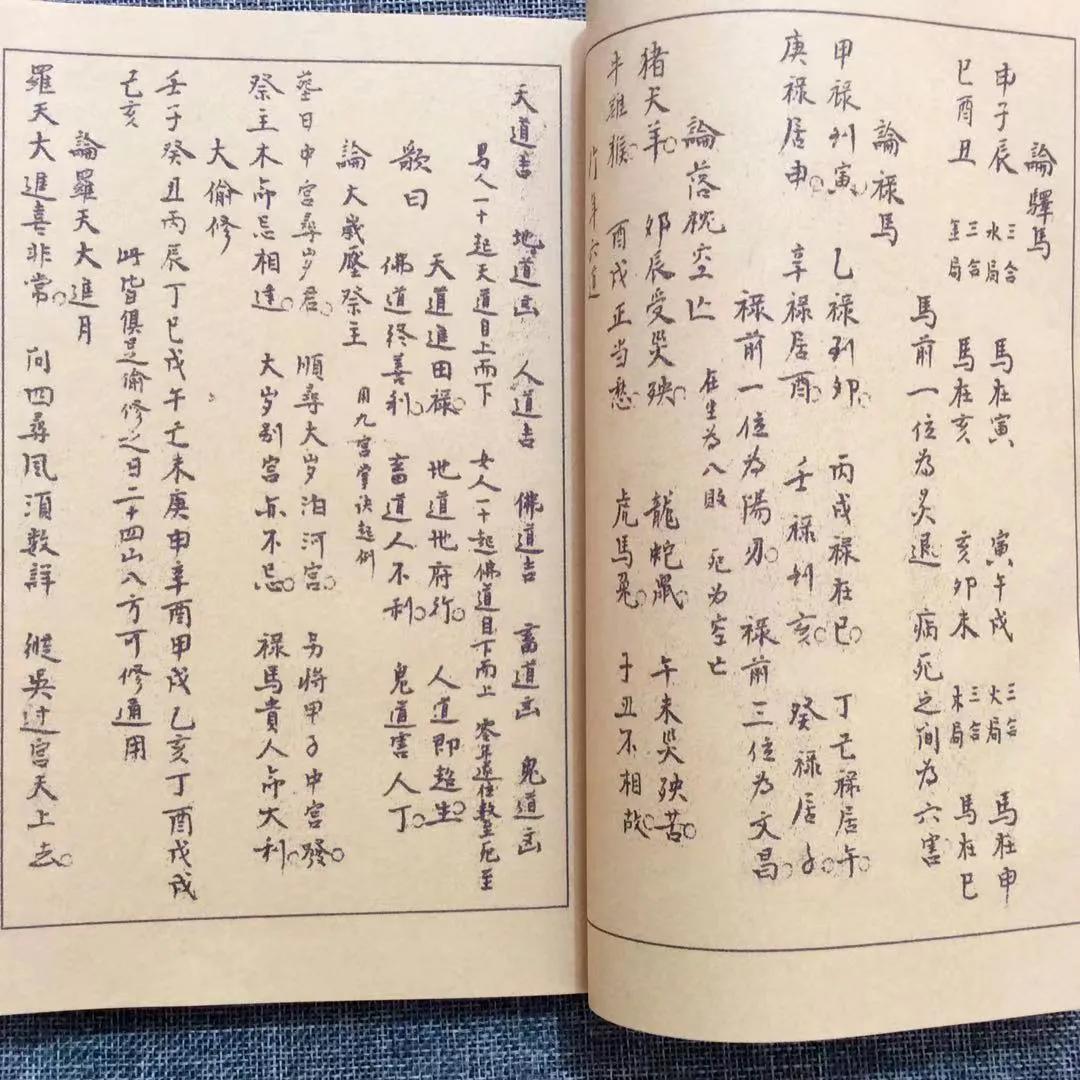 論驛馬
申子辰 三合水局 馬在寅 寅午戌 三合火局 馬在申
巳酉丑 三合金局 馬在亥 亥卯未 三合木局 馬在巳
馬前一位為灸退 病死之间為六害
論禄馬
甲禄到寅。 乙禄到卯。 丙戌禄在巳。 丁己禄居午。
庚禄居申。 辛禄居酉。 壬禄到亥。 癸禄居子。
禄前一位為陽刃。 禄前三位為文昌。
論落枕空亡 在生為八敗 死为空亡
猪犬羊。 卯辰受災殃。 龍蛇鼠。 午未災殃苦。
牛雞猴。 酉戌正当愁。 虎馬兔。 子丑不相故。
行年六道
天道吉 地道凶 人道吉 佛道吉 畜道凶 鬼道凶
男人一十起天道自上而下 女人一十起佛道自下而上 零年遠往数至死至
歌曰 天道進田禄。 地道地府行。 人道即超生。
佛道终善利。 畜道人不利。 鬼道害人丁。
論大歲壓祭主 用九宫掌诀起例
塟日中宫尋岁君。 順尋大岁泊河宫。 另将甲子中宫發。
祭主木命忌相逢。 大岁别宫亦不忌。 禄馬貴人命大利。
大偷修
壬子癸丑丙辰丁巳戊午己未庚申辛酉甲戌乙亥丁酉戊戌
己亥 此皆俱是偷修之日二十四山八方可修通用
論羅天大進月
羅天大進喜非常。 向四尋風須数詳 縱吳过宫天上去。